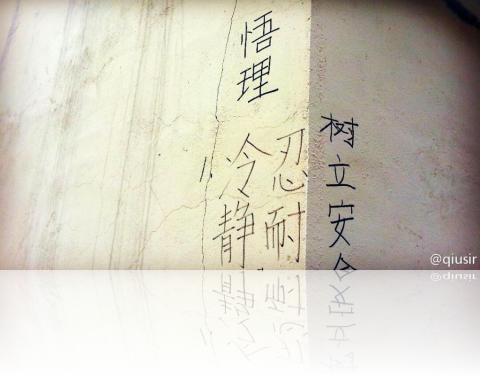 悟理
忍耐
冷静
树立安全
@qiusir